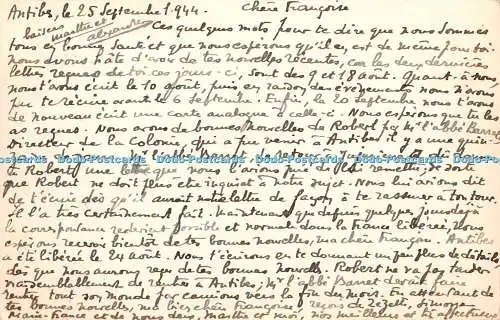 Antibes, le 25 Septembre 1944. Chère Françoise
baisers
Maotte et
Alexandre
Ces quelques mots pour te dire que nous sommes
tous en bonne santé et que nous espérons qu'il en est de même pour toi
nous avons hâte d'avoir de tes nouvelles récentes, car les deux dernières
lettres reçues de toi ces jours-ci, sont des 9 et 18 août. Quant à nous,
nous t'avons écrit le 10 août, puis en raison des évènements nous n'avons
pu te récrire avant le 6 Septembre. Enfin, le 20 septembre nous t'avons
de nouveau écrit une carte analogue à celle-ci. Nous espérons que tu les
as reçues. Nous avons de bonnes nouvelles de Robert par Mr l'abbé Barret
Directeur de la Colonie, qui a pu venir à Antibes il y a une
Dodo-Postcards Dodo-Postcards Dodo-Postcards Dodo-Postcards Dodo-Postcards
à Robert une lettre que nous l'avions prié de lui remettre, de sorte
que Robert ne doit plus être inquiet à notre sujet. Nous lui avions dit
de t'écrire dès qu'il aurait notre lettre de façon à te rassurer à ton tour.
il l'a très certainement fait. Maintenant que depuis quelques jours déjà
la correspondance redevient possible et normale dans la France libérée, nous
espérons recevoir bientôt de tes bonnes nouvelles, ma chère Françoise. Antibes
a été libérée le 24 août. Nous t'écrirons en te donnant un peu plus de détails
dès que nous aurons reçu de tes bonnes nouvelles. Robert ne va pas tarder
vraisemblablement de rentrer à Antibes; Mr l'abbé Barret devrait faire
rentrer tout son monde par camions vers la fin du mois. En attendant de
tes bonnes nouvelles, ma bien chère Françoise reçois de Zézelli, Simone
Marie-France et de nous deux, Maotte et moi, nos meilleurs et tr. affectueux